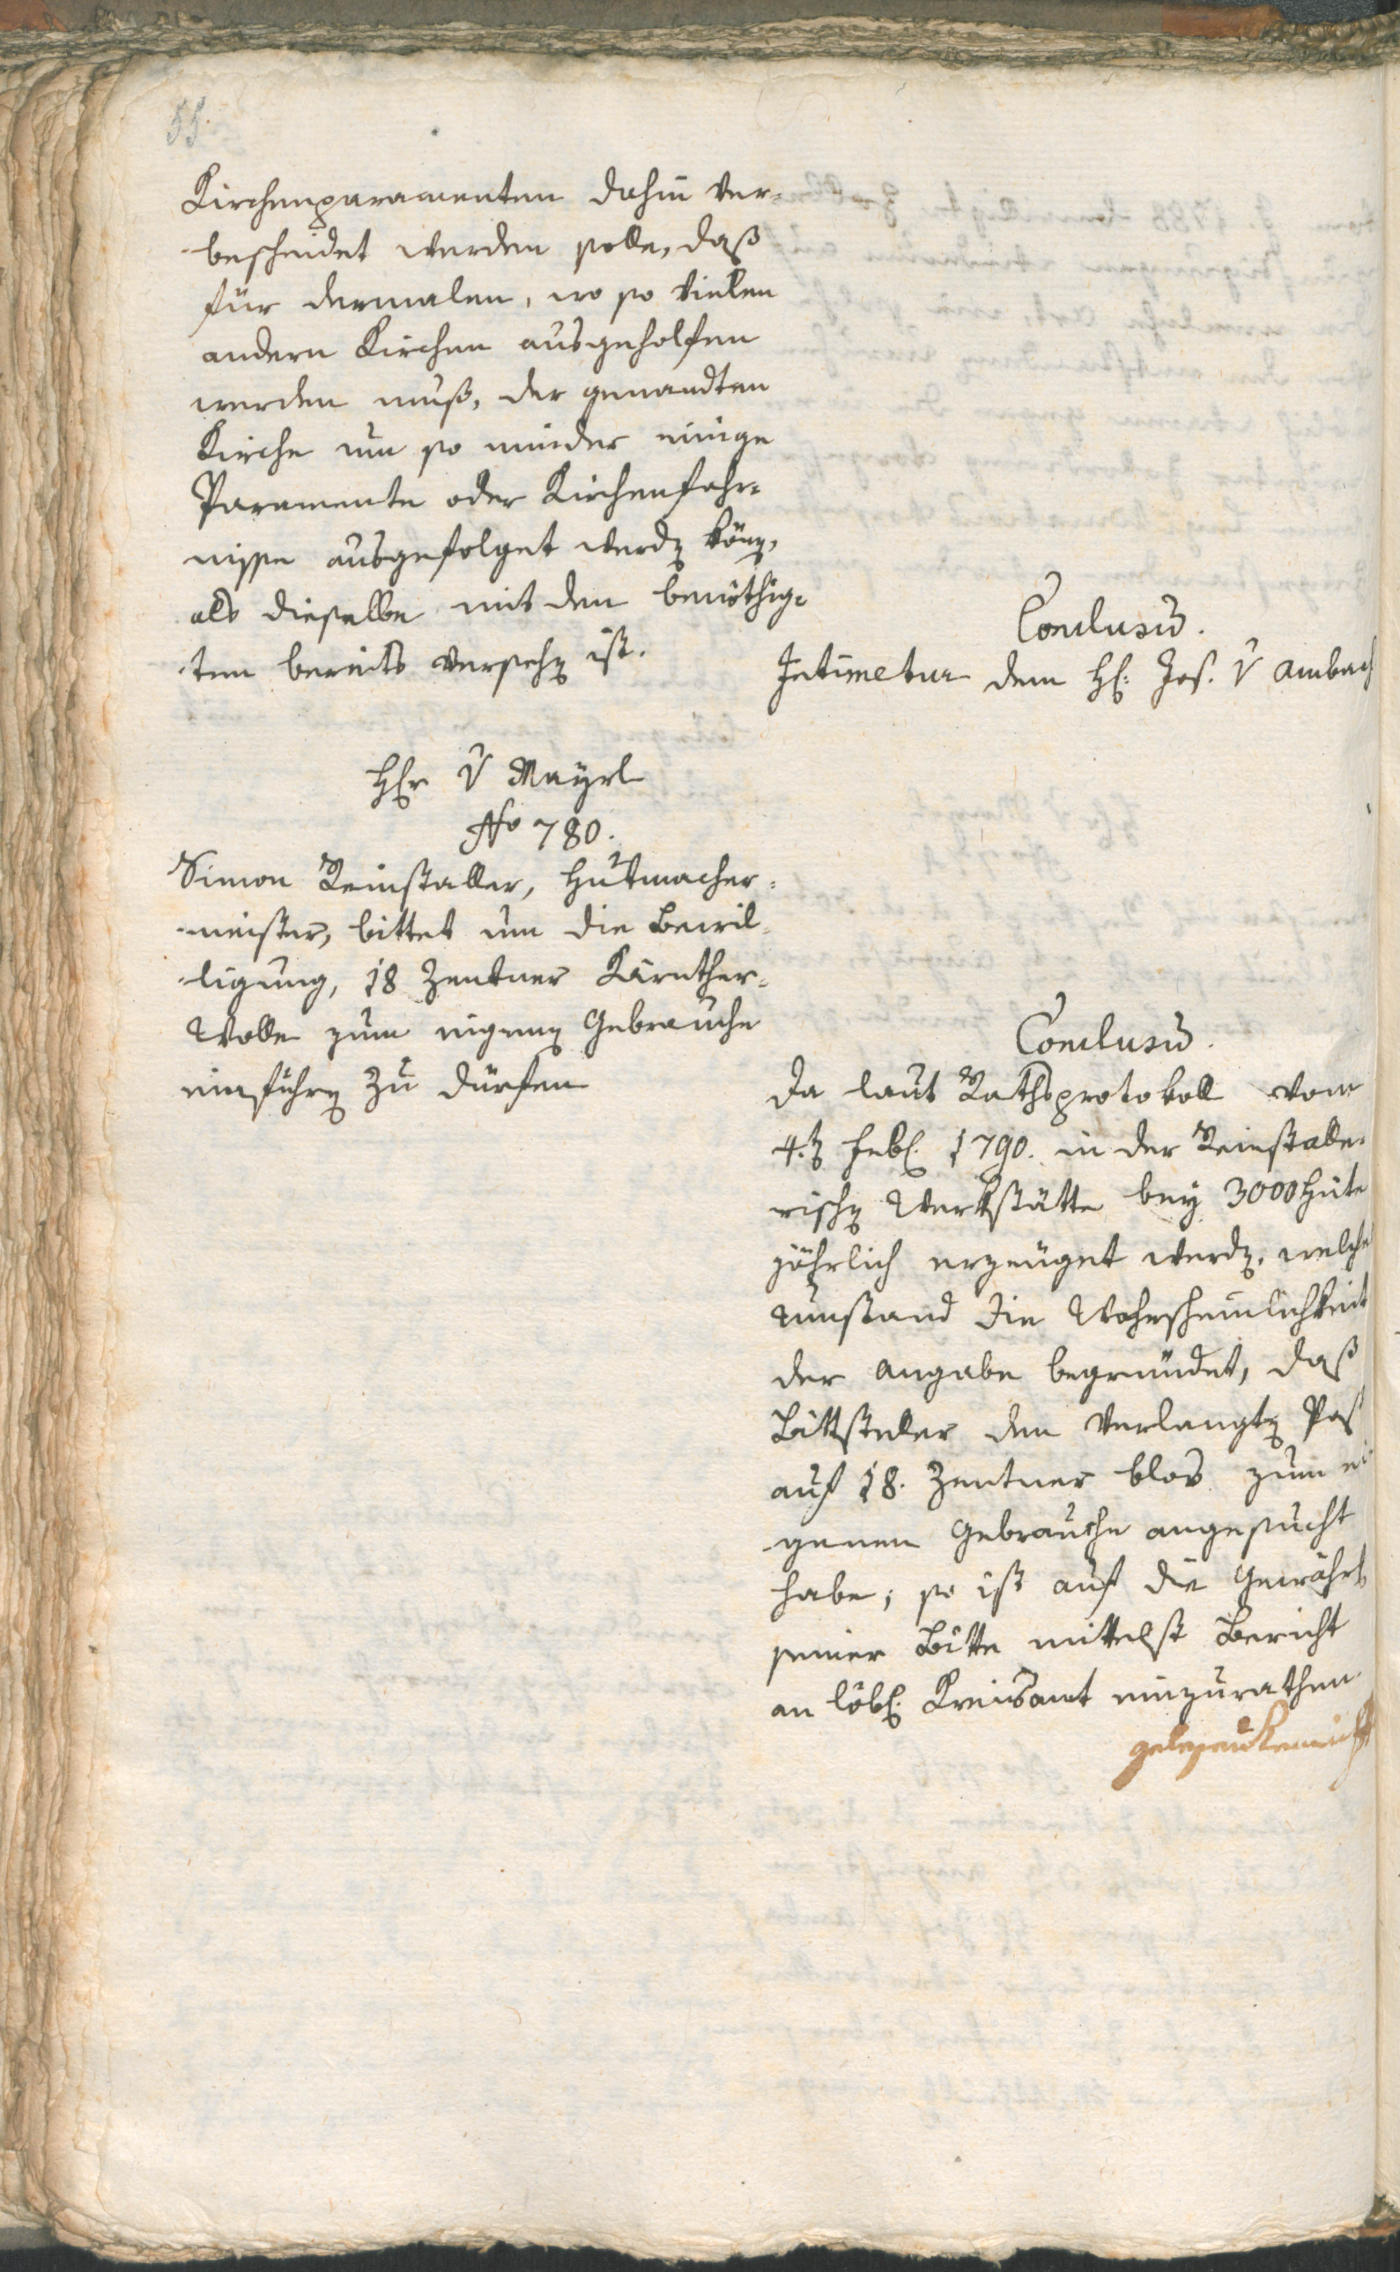 55.
Kirchenparamenten dahin ver-
bescheidet werden solle, daß
für dermalen, wo so vielen
andern Kirchen ausgeholfen
werden muß, der genandten
Kirche um so minder einige
Paramente oder Kirchenfahr-
nisse ausgefolget werdn könn,
als dieselbe mit den benöthig-
ten bereits versehn ist.
Conclusū.
Intimetur dem H: Jos. v Ambach
Hr v Mayrl
No 780.
Simon Reinstaller, Hutmacher-
meister, bittet um die Bewil-
ligung, 18 Zentner Kärnther-
Wolle zum eigenen Gebrauche
einführn zu dürfen
Conclusū.
Da laut Rathsprotokoll vom
4.t Feb. 1790. in der Reinstalle-
rischn Werkstätte bey 3000 Hüte
jährlich erzeuget werdn, welche
Umstand die Wahrscheinlichkeit
der Angabe begründet, daß
Bittsteller den verlangtn Pas
auf 18. Zentner blos zum ei
genen Gebrauche angesucht
habe; so ist auf die Gewähr
seiner Bitte mittelst Bericht
an löbl. Kreisamt einzurathen
gelesen